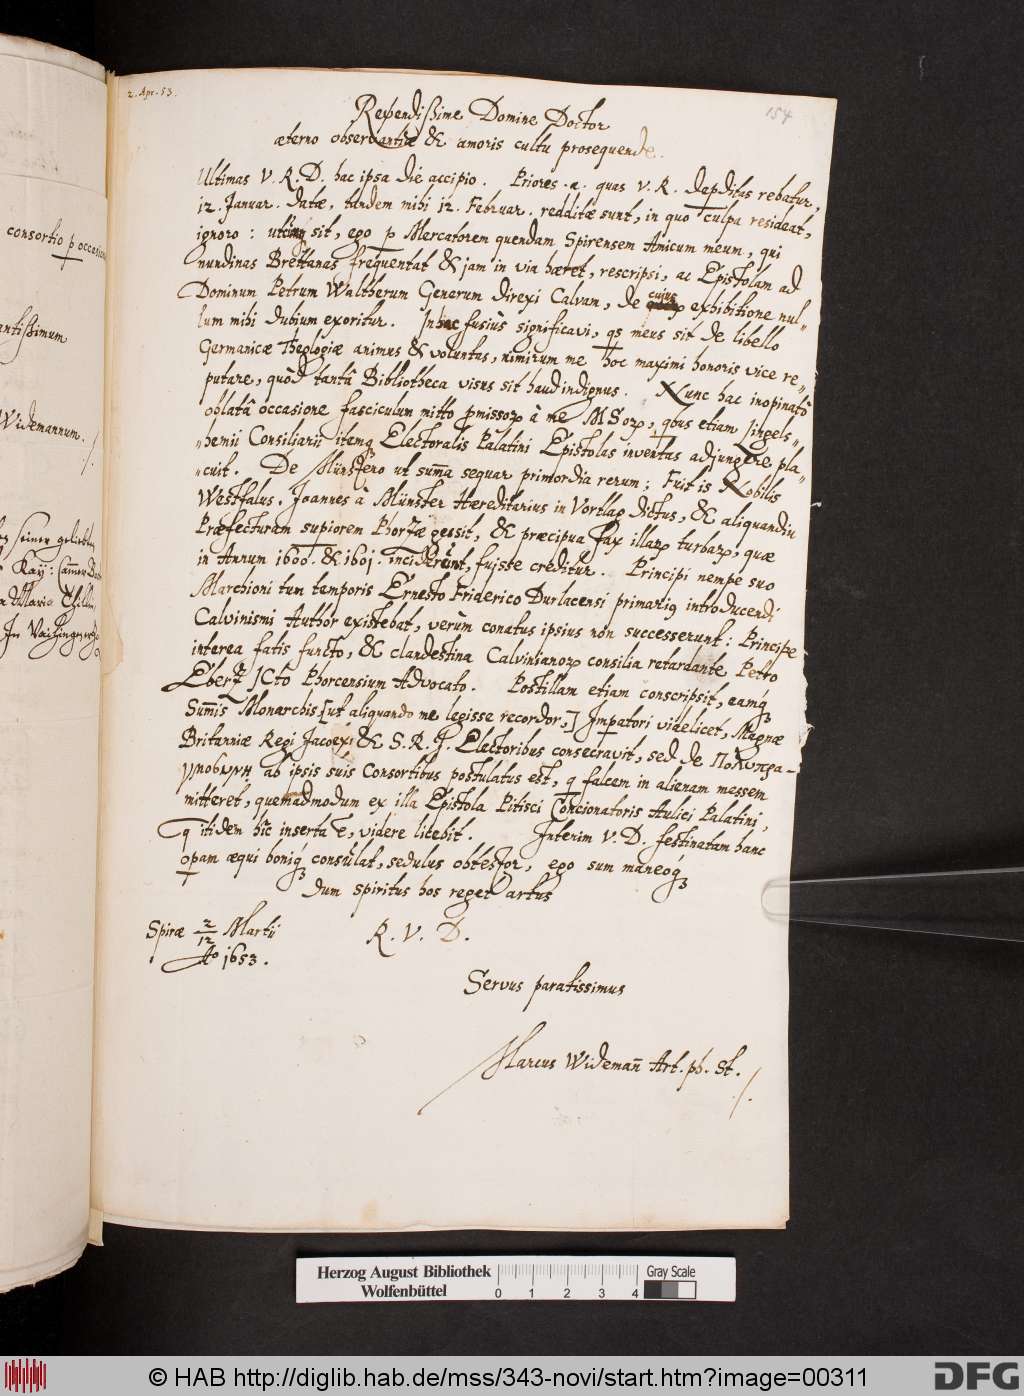 2. Apr. 53.
154
Rev̅endißime Domine Doctor
æterno observantiæ & amoris cultu prosequende.
Ultimas V. R. D. hac ipsa die accipio. Priores .a. quas V. R. deperditas rebatur,
12. Januar. datæ, tandem mihi 12. Februar. redditæ sunt, in quo culpa resideat,
ignoro: utcunq sit, ego p Mercatorem quendam Spirensem Amicum meum, qui
nundinas Brettanas frequentat & jam in via hæret, rescripsi, ac Epistolam ad
Dominum Petrum Waltherum Generum direxi Calvam, de cujus exhibitione nul-
lum mihi dubium exoritur. In hac fusiùs significavi, qs meus sit de libello
Germanicæ Theologiæ animus & voluntas, nimirum me hoc maximi honoris vice re-
putare, quòd tantâ Bibliotheca visus sit haud indignus. Nunc hac inopinatò
oblatâ occasione fasciculum mitto pmissoꝝ à me MSoꝝ, qbus etiam Lingels-
hemii Consiliarii itemq Electoralis Palatini Epistolas inventas adjungere pla-
cuit. De Münstero ut sum̅a sequar primordia rerum: Fuit is Nobilis
Westfalus, Joannes à Münster Hæreditarius in Vortlap dictus, & aliquandiu
Præfecturam supiorem Phorzæ gessit, & præcipua Fax illaꝝ turbaꝝ, quæ
in Annum 1600. & 1601. inciderunt, fuisse creditur. Principi nempe suo
Marchioni tum temporis Ernesto Friderico Durlacensi primariq introducendi
Calvinismi Author existebat, verùm conatus ipsius non successerunt: Principe
interea fatis functo, & clandestina Calvinianoꝝ consilia retardante Petro
Eberz JCto Phorcensium Advocato. Postillam etiam conscripsit, eamq
Sum̅is Monarchis [ut aliquando me legisse recordor,] Impatori videlicet, Magnæ
Britanniæ Regi Jacobi & S. R. I. Electoribus consecravit, sed de Πολυπρα-
γμοσύνη ab ipsis suis Consortibus postulatus est, q falcem in alienam messem
mitteret, quemadmodum ex illa Epistola Pitisci Concionatoris Aulici Palatini,
q itidem hîc inserta e̅, videre licebit. Interim V. D. festinatam hanc
opam æqui boniq consulat, sedulus obtestor, ego sum maneoq
dum spiritus hos reget artus
Spiræ 2/12 Martii
Aº 1653.
R. V. D.
Servus paratissimus
Marcus Wideman̅ Art. ph. St.
consortio p occasion
antißimum
Widemannum.
Herzog August Bibliothek
Wolfenbüttel
0 1 2 3 4
Gray Scale
© HAB http://diglib.hab.de/mss/343-novi/start.htm?image=00311
DFG